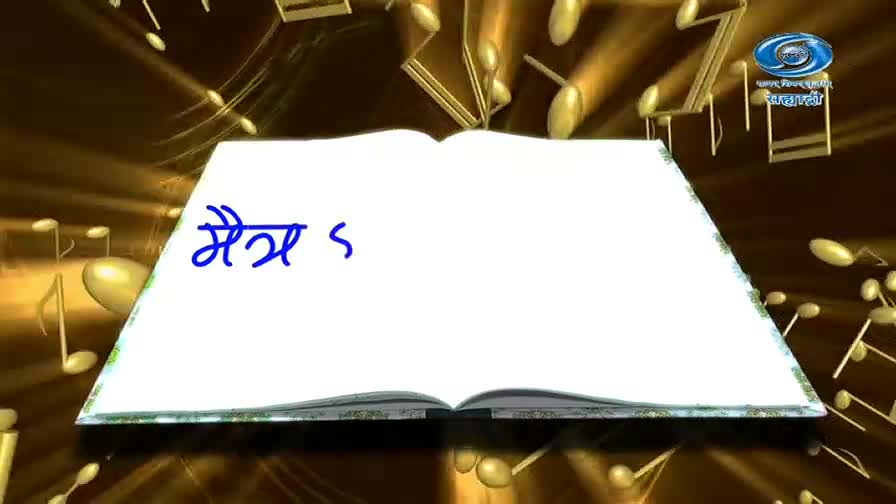 मैत्र
सत्यम् शिवम् सुन्दरम्
सह्याद्री